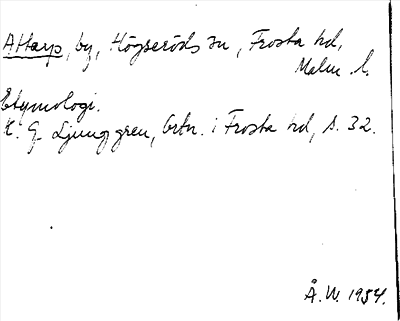 Attarp, by, Högseröds sn, Frosta hd,
Malm. l.
Etymologi.
K. G. Ljunggren, Ortn. i Frosta hd, s. 32.
Å. W. 1954.